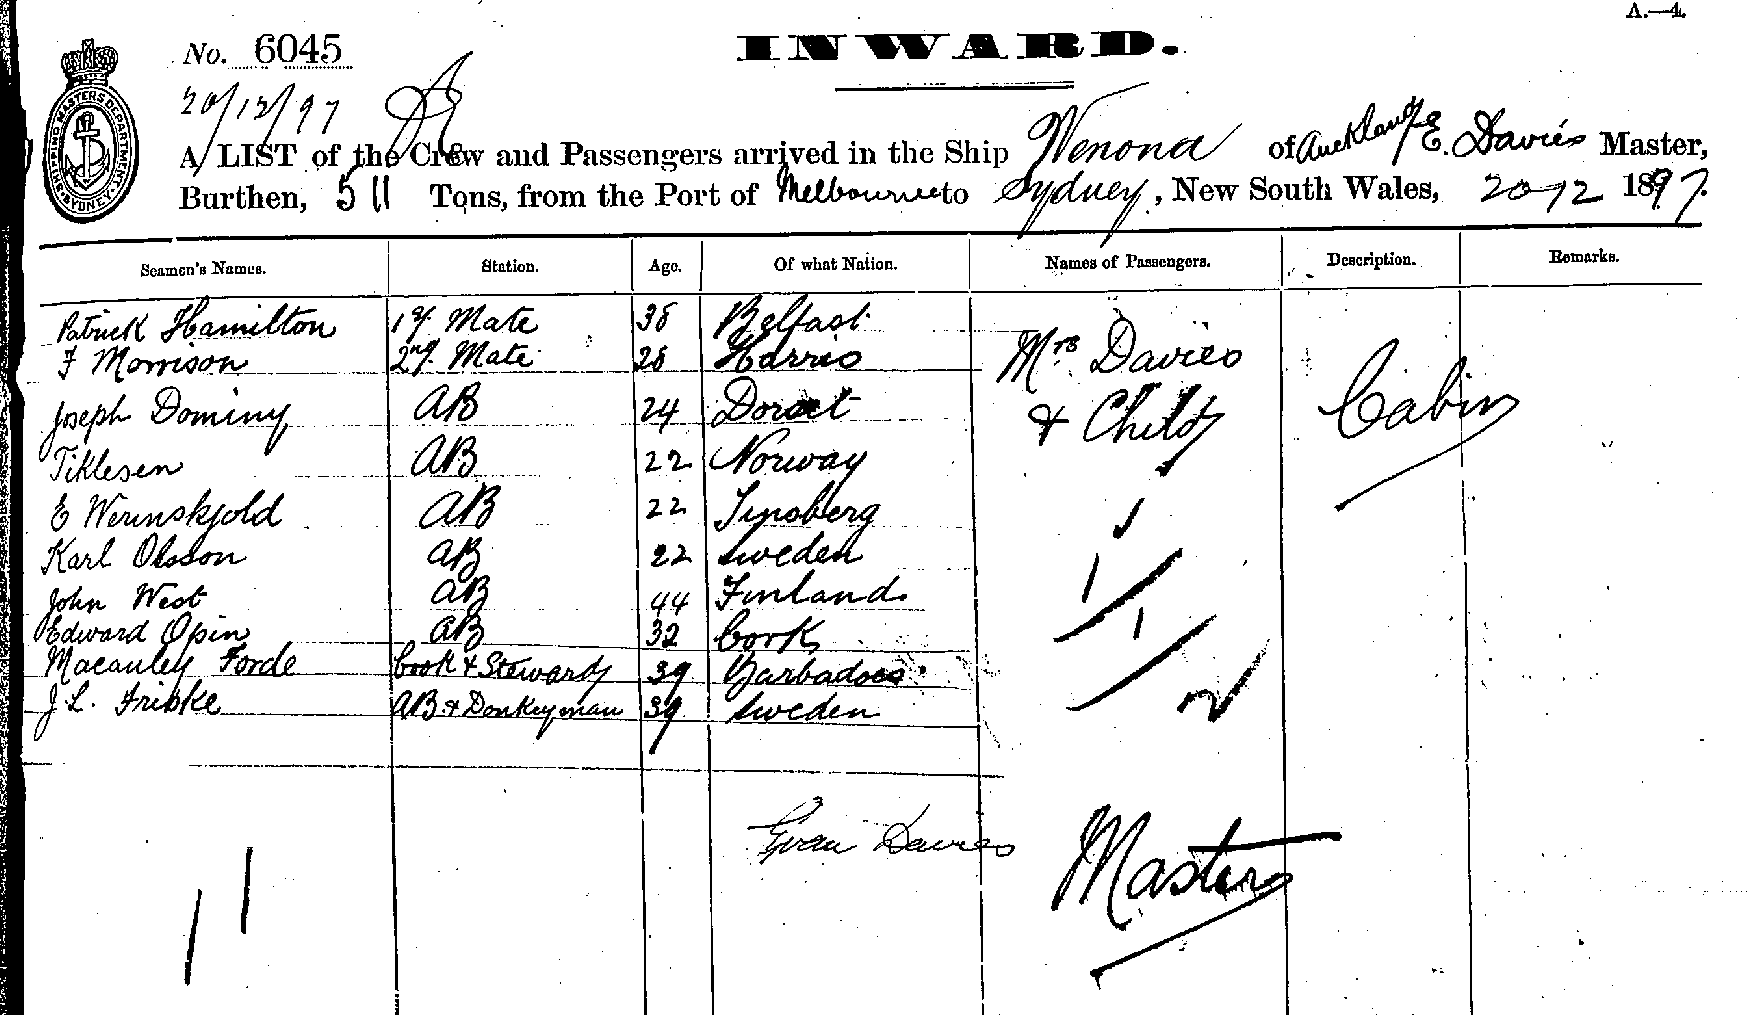 A.—4.
No. 6045
INWARD.
20/12/97
A LIST of the Crew and Passengers arrived in the Ship Wenona of Auckland E. Davies Master,
Burthen, 511 Tons, from the Port of Melbourne to Sydney, New South Wales, 20-12 1897.
SHIPPING MASTERS DEPARTMENT SYDNEY
Seamen's Names. Station. Age. Of what Nation. Names of Passengers. Description. Remarks.
Patrick Hamilton 1st Mate 38 Belfast
F Morrison 2nd Mate 28 Harris Mrs Davies
Joseph Dominy AB 24 Dorset & Child Cabin
Tiklesen AB 22 Norway
E Werinskjold AB 22 Tinsberg 1
Karl Olsson AB 22 Sweden 1
John West AB 44 Finland
Edward Opin AB 32 Cork 1
Macauley Forde Cook & Steward 39 Barbadoes
J. L. Fribke AB & Donkeyman 39 Sweden 2
Evan Davies Master
11